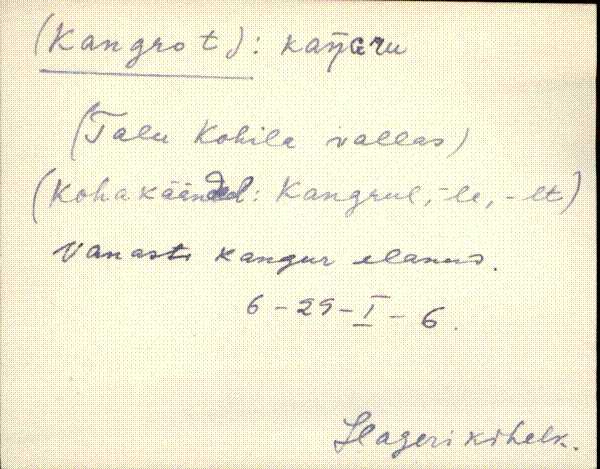 (Kangro t.): kaŋGru
(Talu Kohila vallas)
(Kohakäänded: Kangrul, -le, -lt)
Vanasti kangur elanus.
6-29-I-6.
Hageri kihelk.